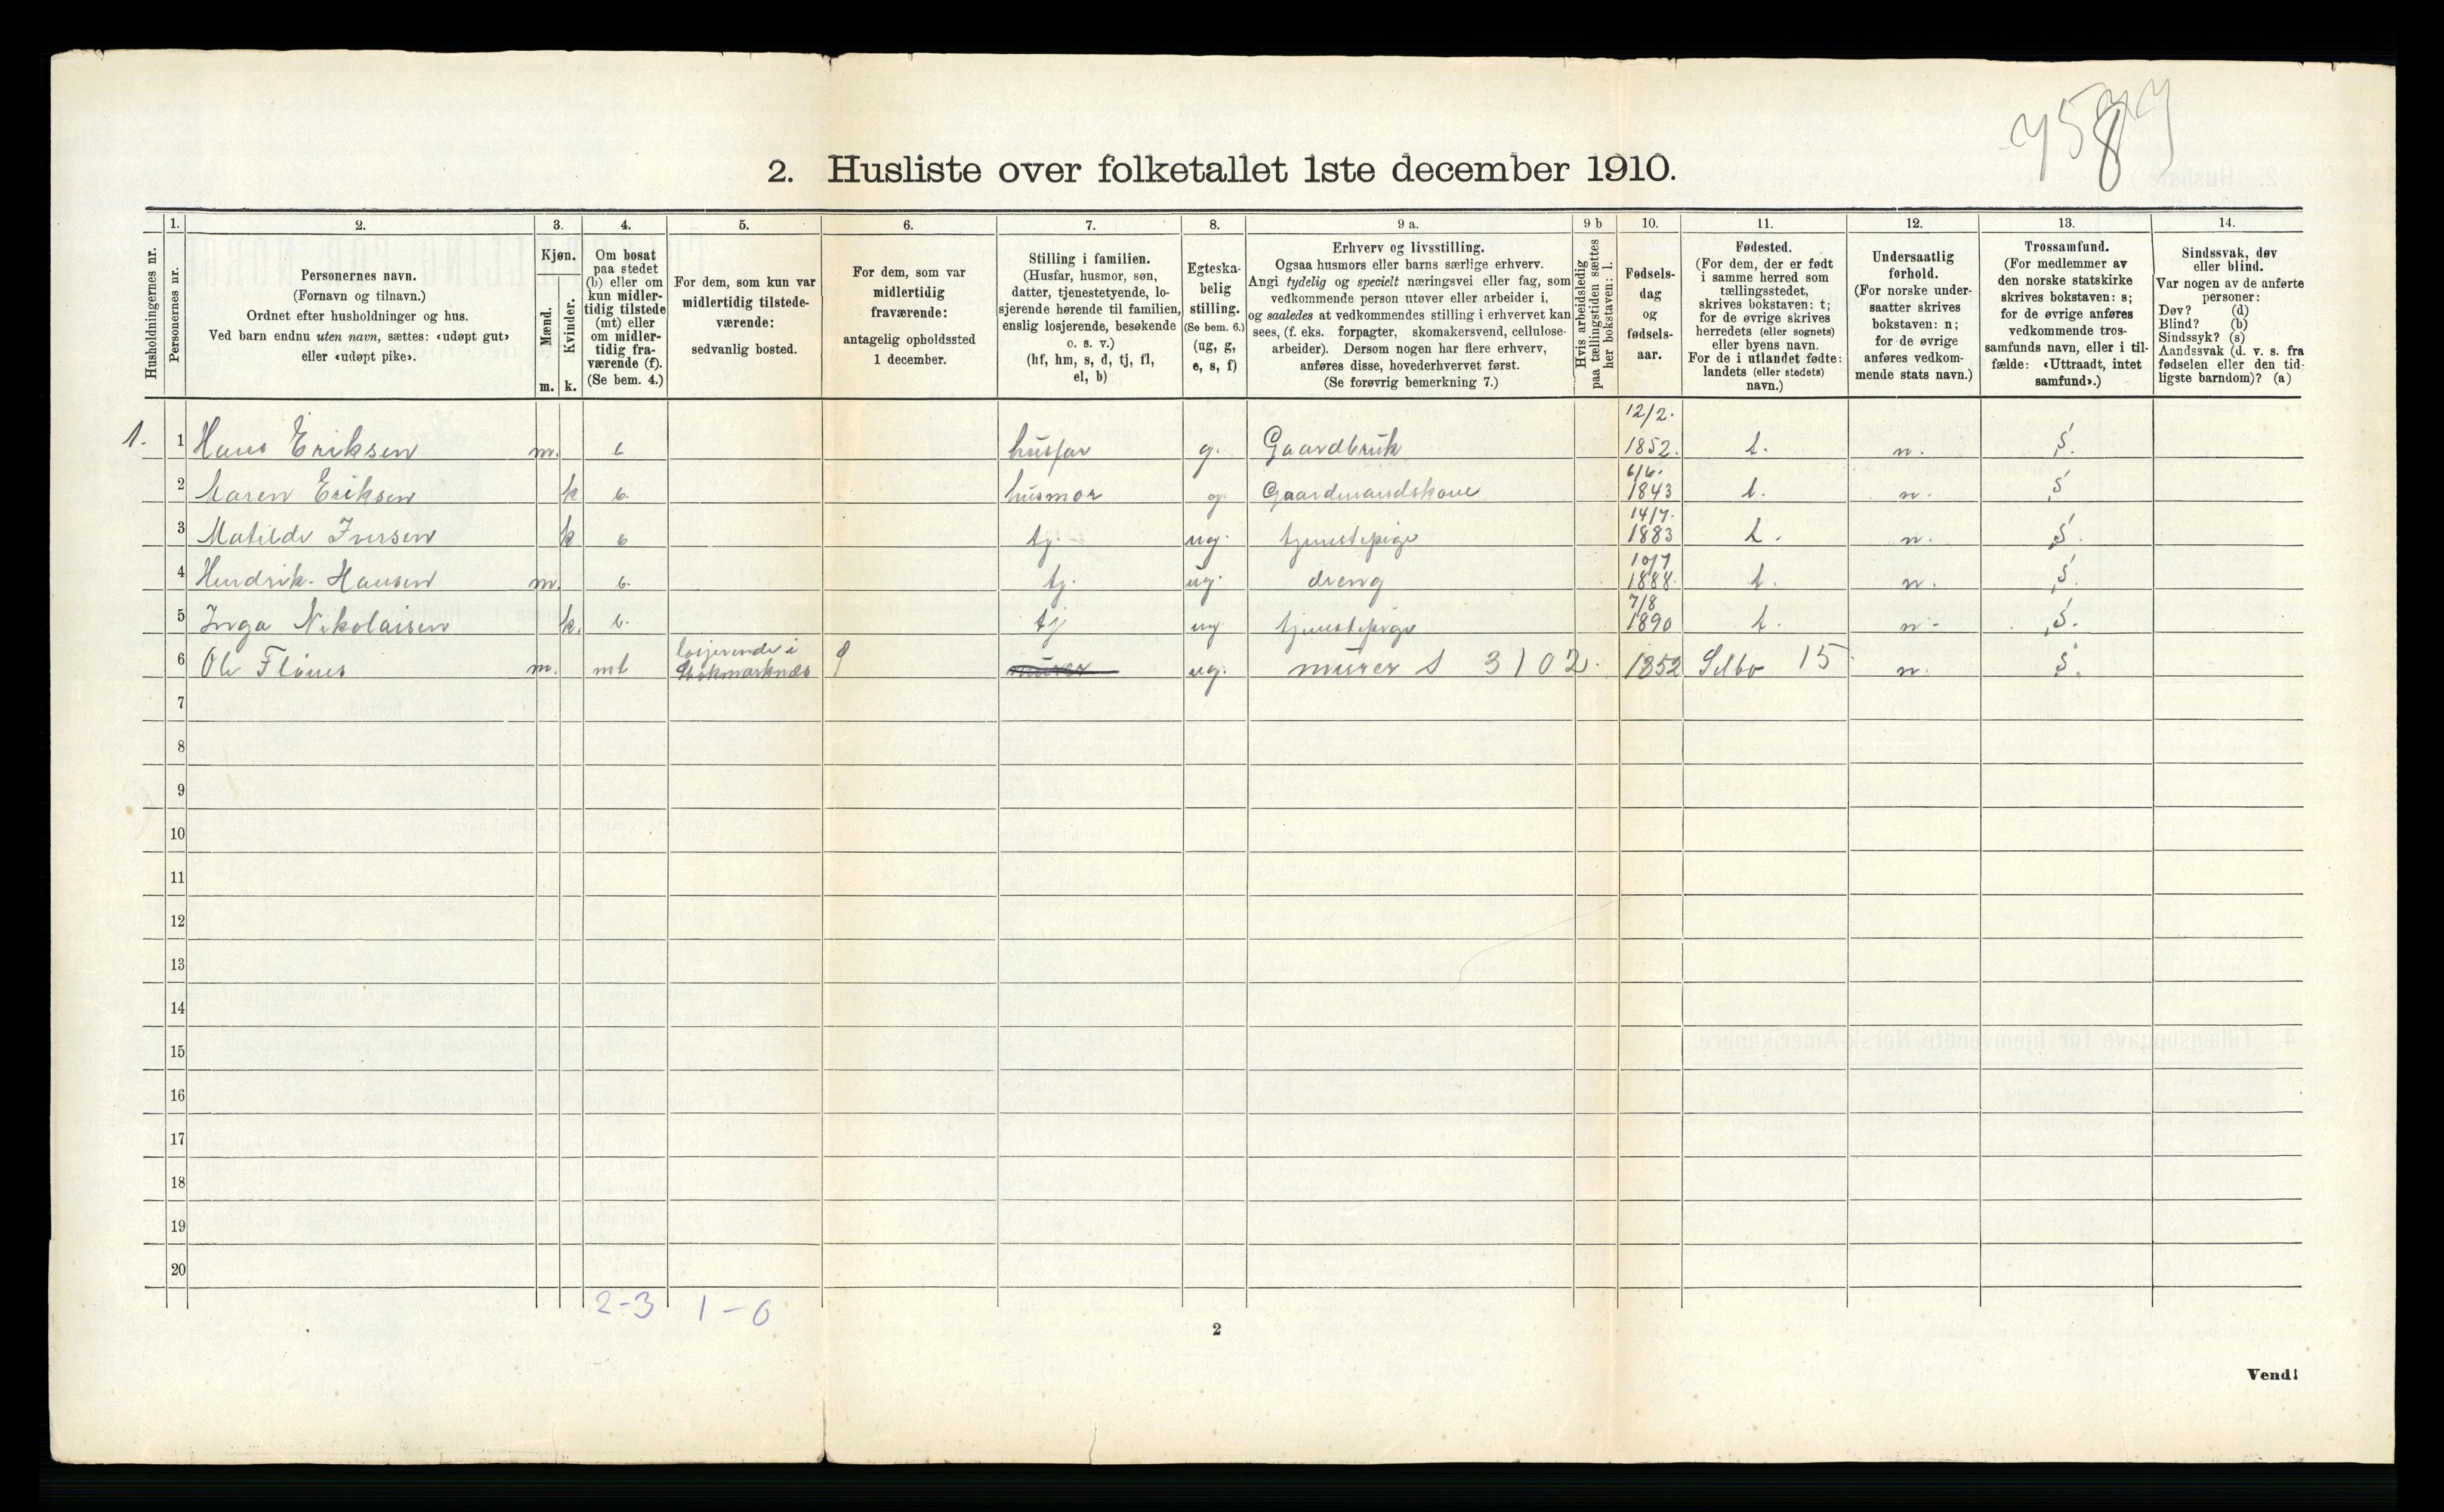 7587
2. Husliste over folketallet 1ste december 1910.
Husholdningernes nr.
1. Personernes nr.
2. Personernes navn.
(Fornavn og tilnavn.)
Ordnet efter husholdninger og hus.
Ved barn endnu uten navn, sættes: «udøpt gut»
eller «udøpt pike».
3. Kjøn.
Mænd. m.
Kvinder. k.
4. Om bosat
paa stedet
(b) eller om
kun midler-
tidig tilstede
(mt) eller
om midler-
tidig fra-
værende (f).
(Se bem. 4.)
5. For dem, som kun var
midlertidig tilstede-
værende:
sedvanlig bosted.
6. For dem, som var
midlertidig
fraværende:
antagelig opholdssted
1 december.
7. Stilling i familien.
(Husfar, husmor, søn,
datter, tjenestetyende, lo-
sjerende hørende til familien,
enslig losjerende, besøkende
o. s. v.)
(hf, hm, s, d, tj, fl,
el, b)
8. Egteska-
belig
stilling.
(Se bem. 6.)
(ug, g,
e, s, f)
9 a. Erhverv og livsstilling.
Ogsaa husmors eller barns særlige erhverv.
Angi tydelig og specielt næringsvei eller fag, som
vedkommende person utøver eller arbeider i,
og saaledes at vedkommendes stilling i erhvervet kan
sees, (f. eks. forpagter, skomakersvend, cellulose-
arbeider). Dersom nogen har flere erhverv,
anføres disse, hovederhvervet først.
(Se forøvrig bemerkning 7.)
9 b Hvis arbeidsledig
paa tællingstiden sættes
her bokstaven: l.
10. Fødsels-
dag
og
fødsels-
aar.
11. Fødested.
(For dem, der er født
i samme herred som
tællingsstedet,
skrives bokstaven: t;
for de øvrige skrives
herredets (eller sognets)
eller byens navn.
For de i utlandet fødte:
landets (eller stedets)
navn.)
12. Undersaatlig
forhold.
(For norske under-
saatter skrives
bokstaven: n;
for de øvrige
anføres vedkom-
mende stats navn.)
13. Trossamfund.
(For medlemmer av
den norske statskirke
skrives bokstaven: s;
for de øvrige anføres
vedkommende tros-
samfunds navn, eller i til-
fælde: «Uttraadt, intet
samfund».)
14. Sindssvak, døv
eller blind.
Var nogen av de anførte
personer:
Døv? (d)
Blind? (b)
Sindssyk? (s)
Aandssvak (d. v. s. fra
fødselen eller den tid-
ligste barndom)? (a)
1. 1 Hans Eriksen m. b husfar g. Gaardbruk 12/2. 1852. t. n. S.
2 Maren Eriksen k b. husmor g. Gaardmandskone 6/6. 1843 t. n. S
3 Matilde Iversen k b tj. ug. tjenestepige 14/7. 1883 t. n. S.
4 Hendrik Hansen m. b. tj. ug. dreng 10/7 1888. t. n. S.
5 Inga Nikolaisen k. b. tj ug tjenestepige 7/8 1890 t. n. S.
6 Ole m. mt losjerende i Stokmarknes murer ug. murer 3102. 1852 Selbo 15 n. S.
7
8
9
10
11
12
13
14
15
16
17
18
19
20
2-3 1-0
2
Vend!